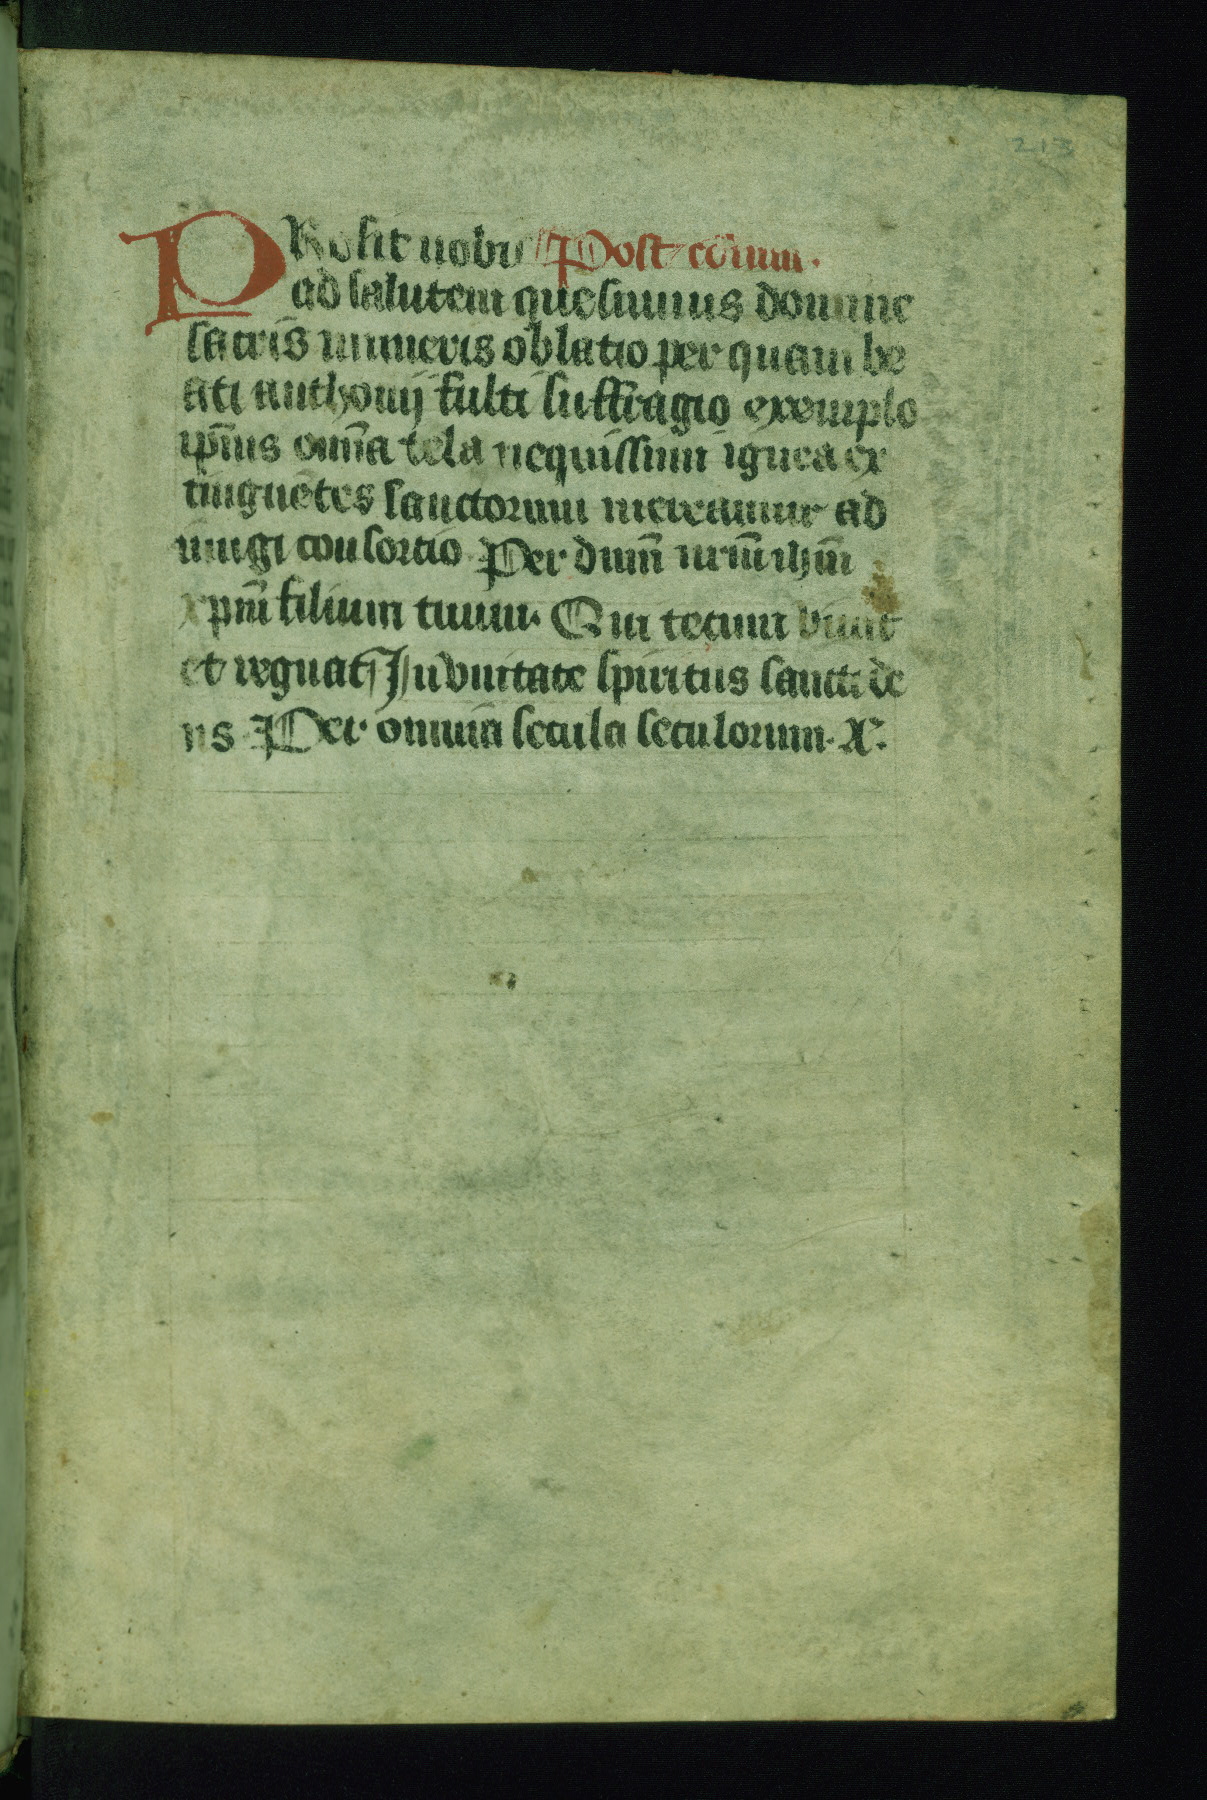 213
PRosit nobis Post cōium.
ad salutem quesumus domine
sacris muneris oblatio per quam be
ati anthonij fulti suffragio exemplo
ip̄ius om̄ia tela nequissimi ignea ex
tinguētes sanctorum mereamur ad
iungi consortio Per dnm̄ nrm̄ ihm̄
xpm̄ filium tuum. Qui tecum viuit
et regnat In vnitate spiritus sancti de
us Per omnia secula seculorum. A.